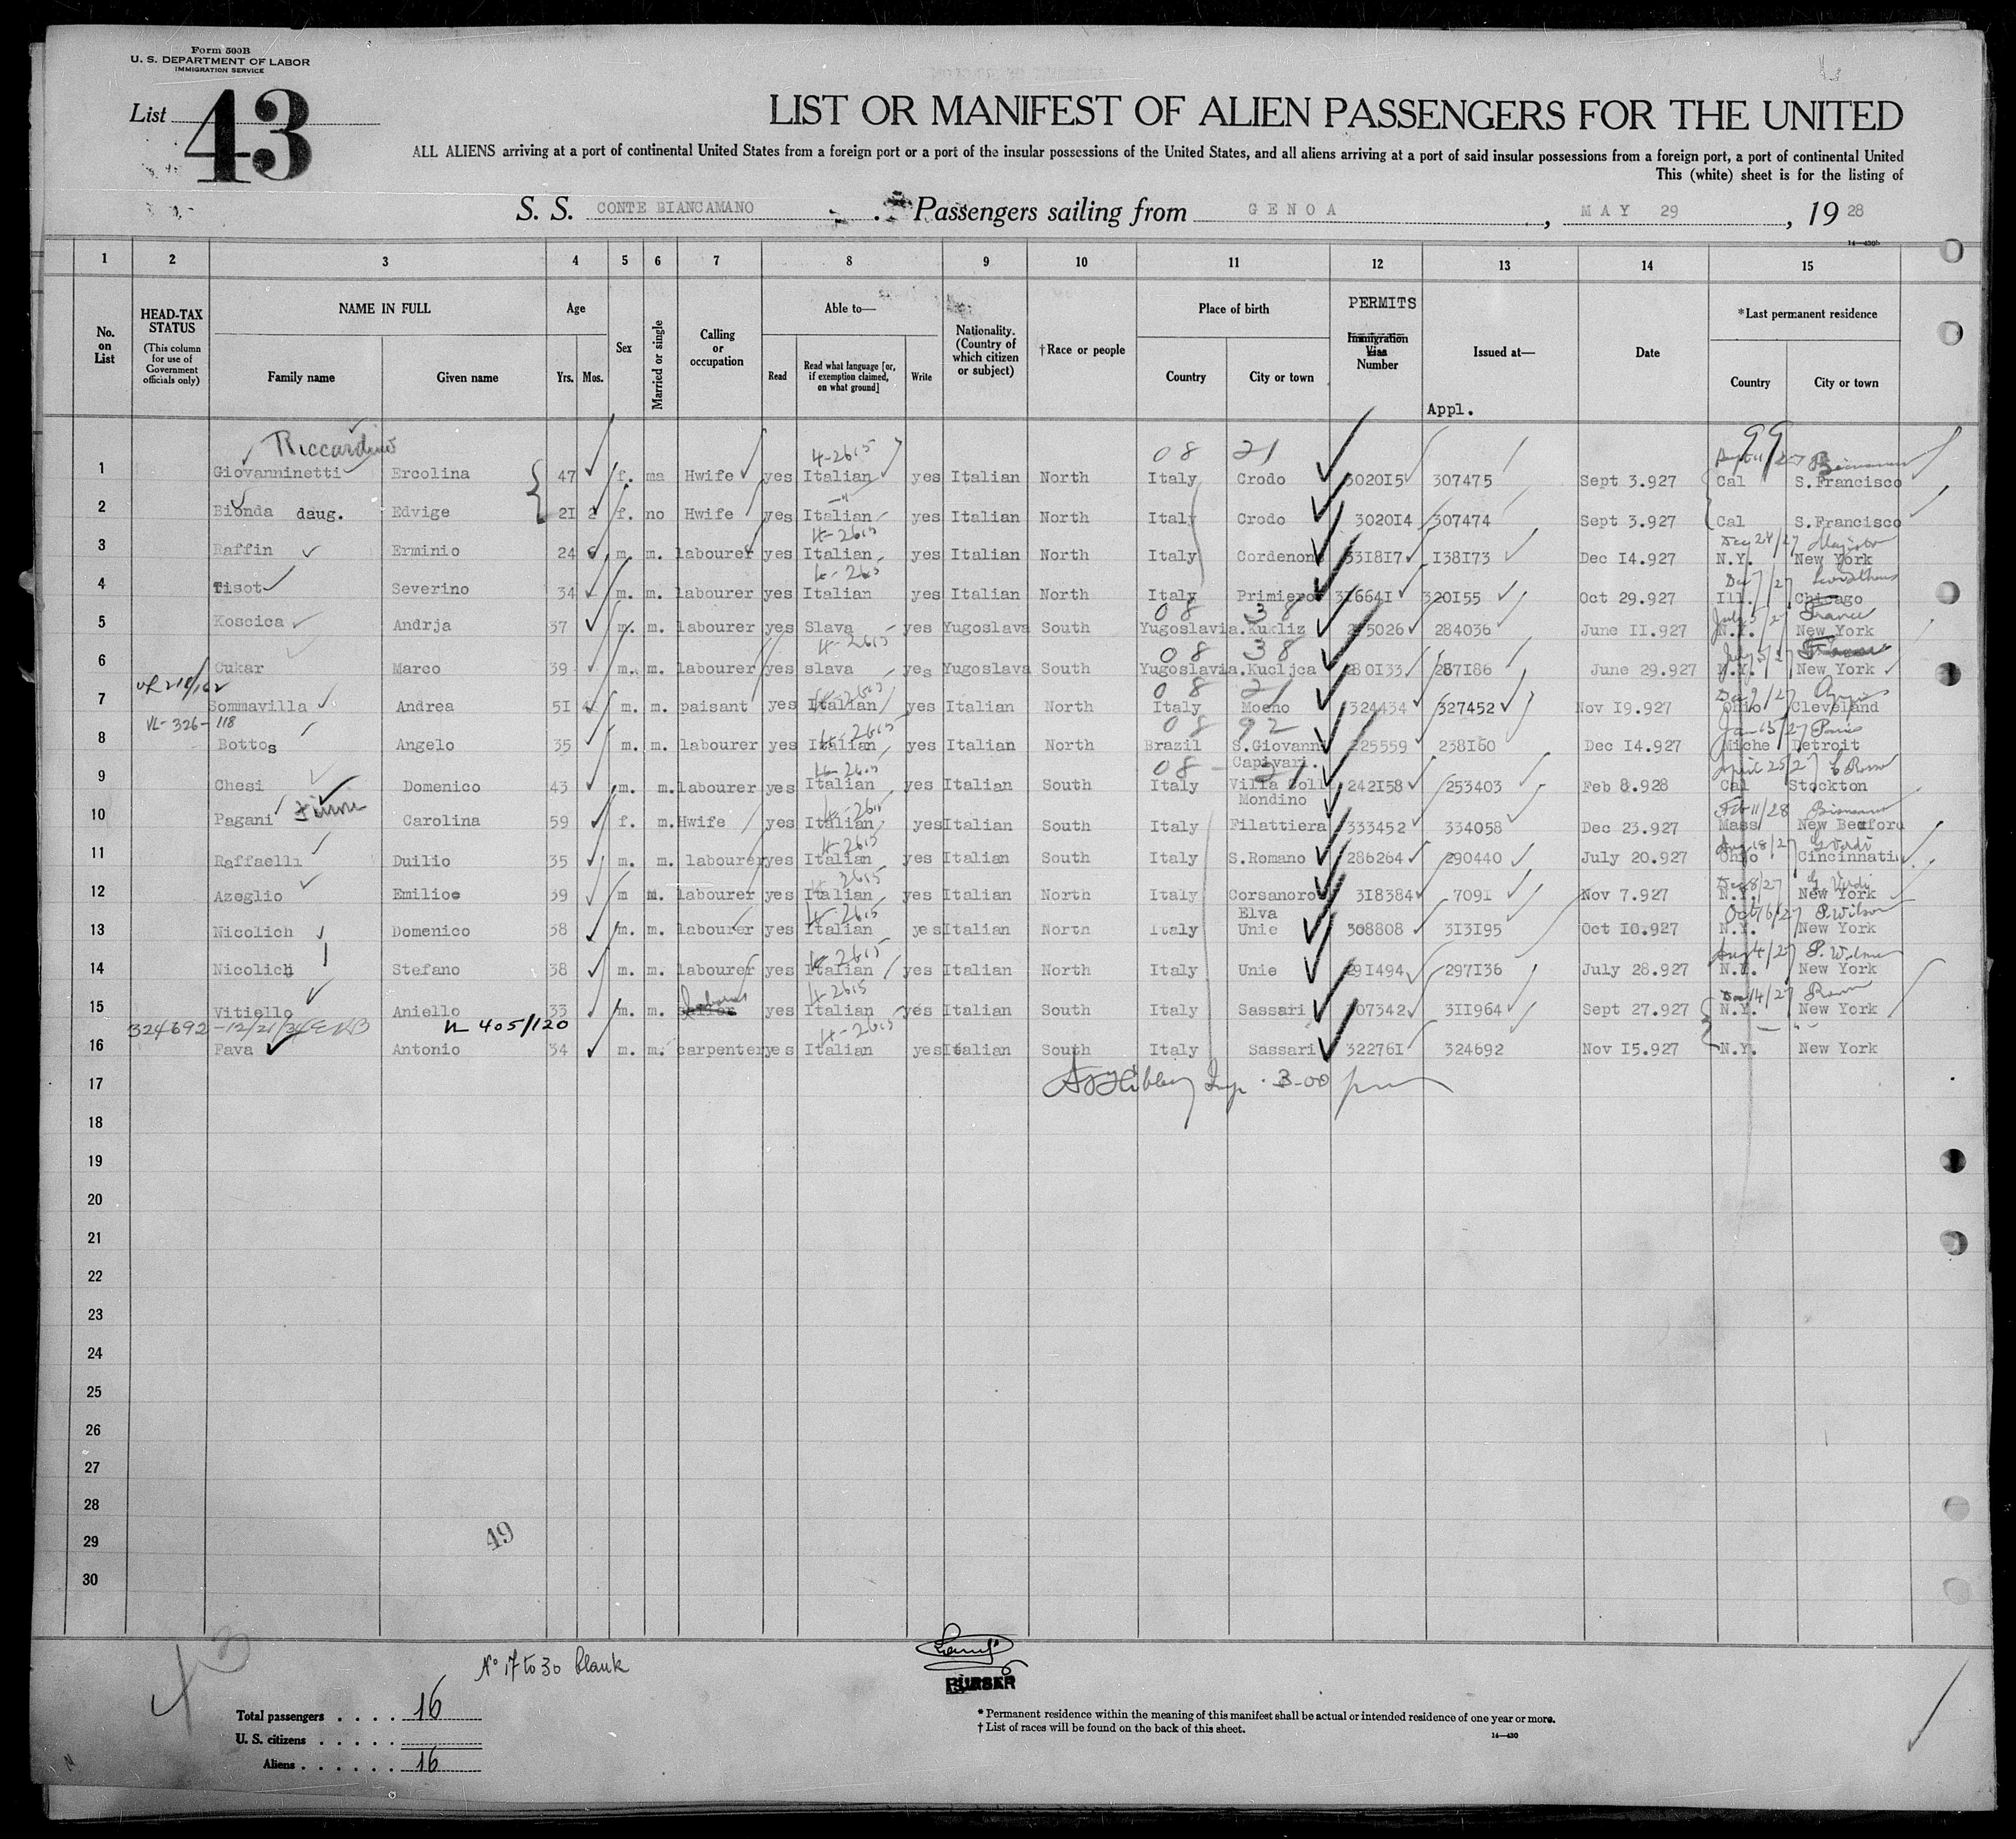 Form 500B
U. S. DEPARTMENT OF LABOR
IMMIGRATION SERVICE
List 43
LIST OR MANIFEST OF ALIEN PASSENGERS FOR THE UNITED
ALL ALIENS arriving at a port of continental United States from a foreign port or a port of the insular possessions of the United States, and all aliens arriving at a port of said insular possessions from a foreign port, a port of continental United
This (white) sheet is for the listing of
S. S. CONTE BIANCAMANO Passengers sailing from GENOA, MAY 29, 19 28
14—430b
1 2 3 4 5 6 7 8 9 10 11 12 13 14 15
No. on List
HEAD-TAX STATUS (This column for use of Government officials only)
NAME IN FULL Family name Given name
Age Yrs. Mos.
Sex
Married or single
Calling or occupation
Able to— Read Read what language [or, if exemption claimed, on what ground] Write
Nationality. (Country of which citizen or subject)
†Race or people
Place of birth Country City or town
PERMITS Immigration Visa Number
Issued at— Appl.
Date
*Last permanent residence Country City or town
Riccardino 4-2615 08 21 99
1 Giovanninetti Ercolina 47 f. ma Hwife yes Italian yes Italian North Italy Crodo 302015 307475 Sept 3.927 Cal S.Francisco
2 Bionda daug. Edvige 21 2 f. no Hwife yes Italian yes Italian North Italy Crodo 302014 307474 Sept 3.927 Cal S.Francisco
4-2615 Dec 24/27 Majestic
3 Raffin Erminio 24 m. m. labourer yes Italian yes Italian North Italy Cordenon 331817 138173 Dec 14.927 N.Y. New York
4-265 Dec 7/27
4 Tisot Severino 34 m. m. labourer yes Italian yes Italian North Italy Primiero 316641 320155 Oct 29.927 Ill. Chicago
08 38 July 5/27 France
5 Koscica Andrja 37 m. m. labourer yes Slava yes Yugoslava South Yugoslavia. Kukliz 275026 284036 June 11.927 N.Y. New York
4-2615 08 38 July 5/27
6 Cukar Marco 39 m. m. labourer yes slava yes Yugoslava South Yugoslavia. Kucljca 280133 287186 June 29.927 N.Y. New York
4-2615 08 21 Dec 9/27
7 Sommavilla Andrea 51 m. m. paisant yes Italian yes Italian North Italy Moeno 324434 327452 Nov 19.927 Ohio Cleveland
VL-326-118 4-2615 08 92 Jan 15/27 Paris
8 Bottos Angelo 35 m. m. labourer yes Italian yes Italian North Brazil S.Giovann Capivari. 225559 238160 Dec 14.927 Miche Detroit
4-2615 08 - 21 April 25/27
9 Chesi Domenico 43 m. m. labourer yes Italian yes Italian South Italy Villa Coll Mondino 242158 253403 Feb 8.928 Cal Stockton
4-2615 Feb 11/28
10 Pagani Carolina 59 f. m. Hwife yes Italian yes Italian South Italy Filattiera 333452 334058 Dec 23.927 Mass New Bedford
4-2615 Aug 18/27 G Verdi
11 Raffaelli Duilio 35 m. m. labourer yes Italian yes Italian South Italy S.Romano 286264 290440 July 20.927 Ohio Cincinnati
4-2615 Dec 8/27 G Verdi
12 Azeglio Emilioe 39 m m. labourer yes Italian yes Italian North Italy Corsanoro Elva 318384 7091 Nov 7.927 N.Y. New York
4-2615 Oct 16/27 P. Wilson
13 Nicolich Domenico 38 m. m. labourer yes Italian yes Italian North Italy Unie 308808 313195 Oct 10.927 N.Y. New York
4-2615 Aug 4/27
14 Nicolich Stefano 38 m. m. labourer yes Italian yes Italian North Italy Unie 291494 297136 July 28.927 N.Y. New York
labourer 4-2615
15 Vitiello Aniello 33 m. m. yes Italian yes Italian South Italy Sassari 307342 311964 Sept 27.927 N.Y. New York
324692 -12/21/34 405/120 4-2615
16 Fava Antonio 34 m. m. carpenter yes Italian yes Italian South Italy Sassari 322761 324692 Nov 15.927 N.Y. New York
17
18
19
20
21
22
23
24
25
26
27
28
29
30
49
43
No 17 to 30 blank
PURSER
Total passengers . . . . 16
U. S. citizens . . . . .
Aliens . . . . . . 16
* Permanent residence within the meaning of this manifest shall be actual or intended residence of one year or more.
† List of races will be found on the back of this sheet.
14—430